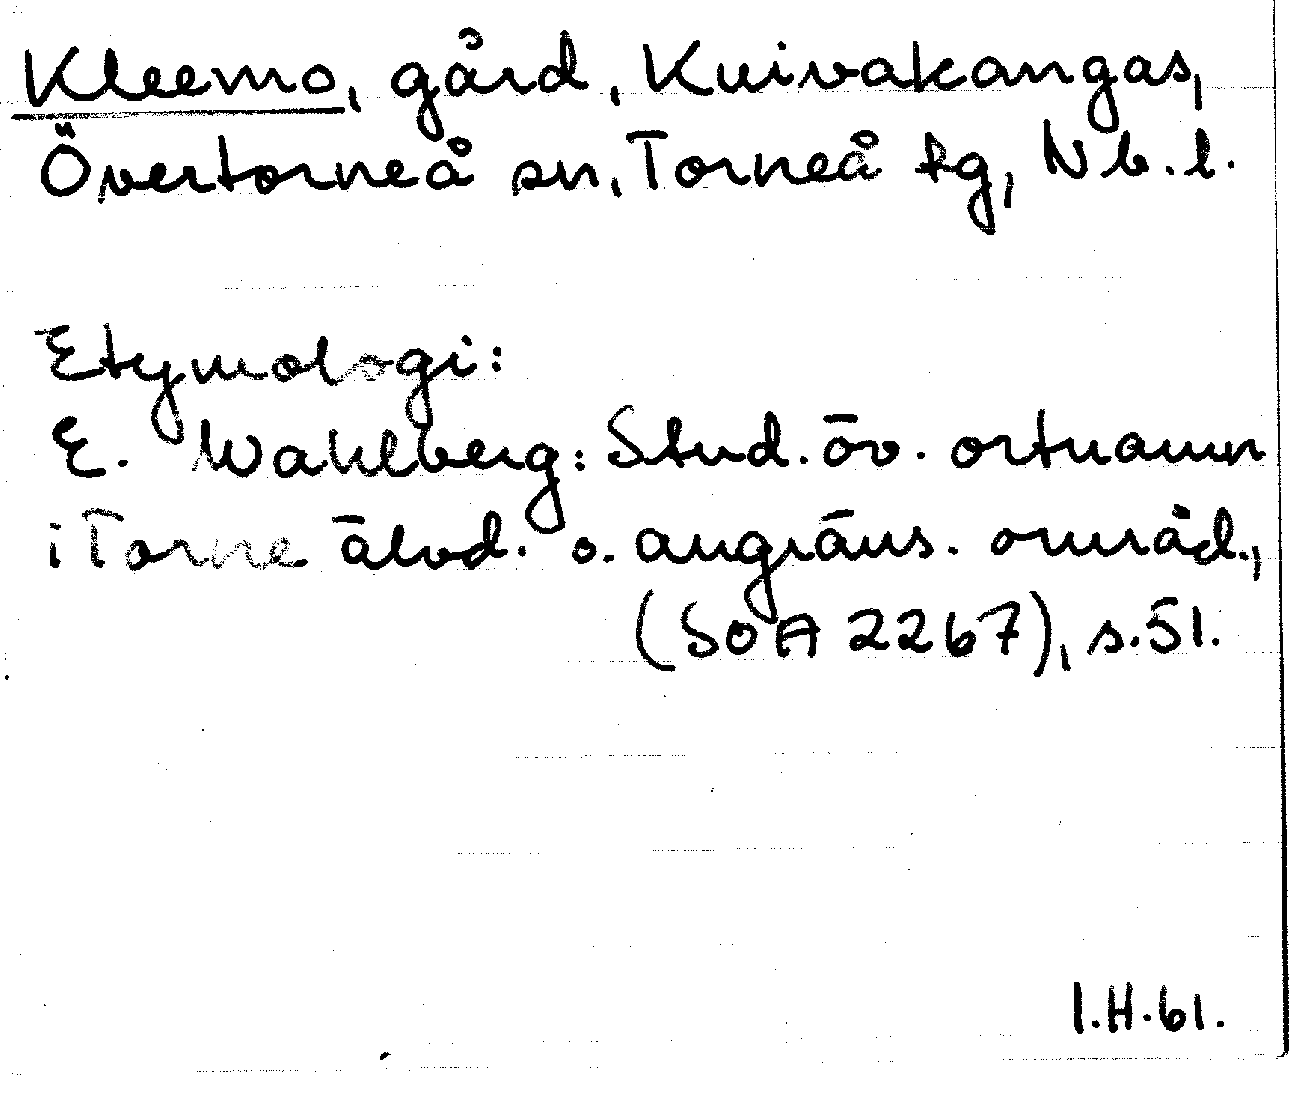 Kleemo, gård, Kuivakangas,
Övertorneå sn, Torneå tg, Nb.l.
Etymologi:
E. Wahlberg: Stud. öv. ortnamn
i Torne älvd. o. angräns. områd.,
(SOA 2267), s.51.
I.H.61.